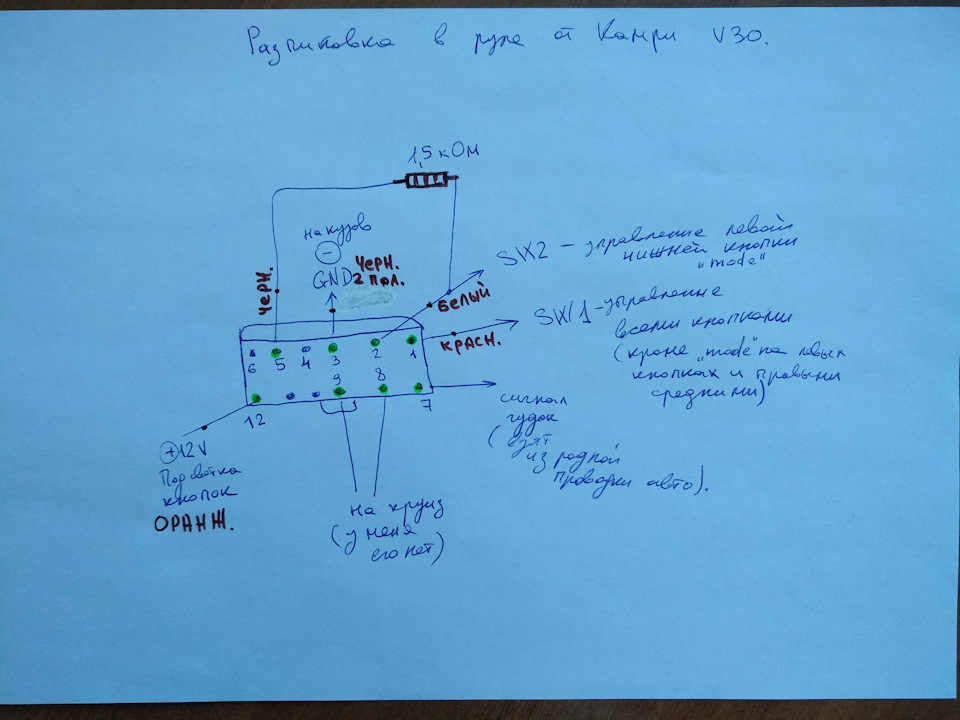 Распиновка в руле от Камри V30.
1,5 кОм
на кузов
−
GND
ЧЕРН.
2 ПОЛ.
ЧЕРН.
SW2 – управление левой
нижней кнопки
"mode"
БЕЛЫЙ
SW1 - управление
всеми кнопками
(кроме "mode" на левых
кнопках и правыми
средними)
КРАСН.
6 5 4 3 2 1
9 8
12 7
сигнал
гудок
(взят
из родной
проводки авто).
+12V
Подсветка
кнопок
ОРАНЖ.
на круиз
(у меня
его нет)